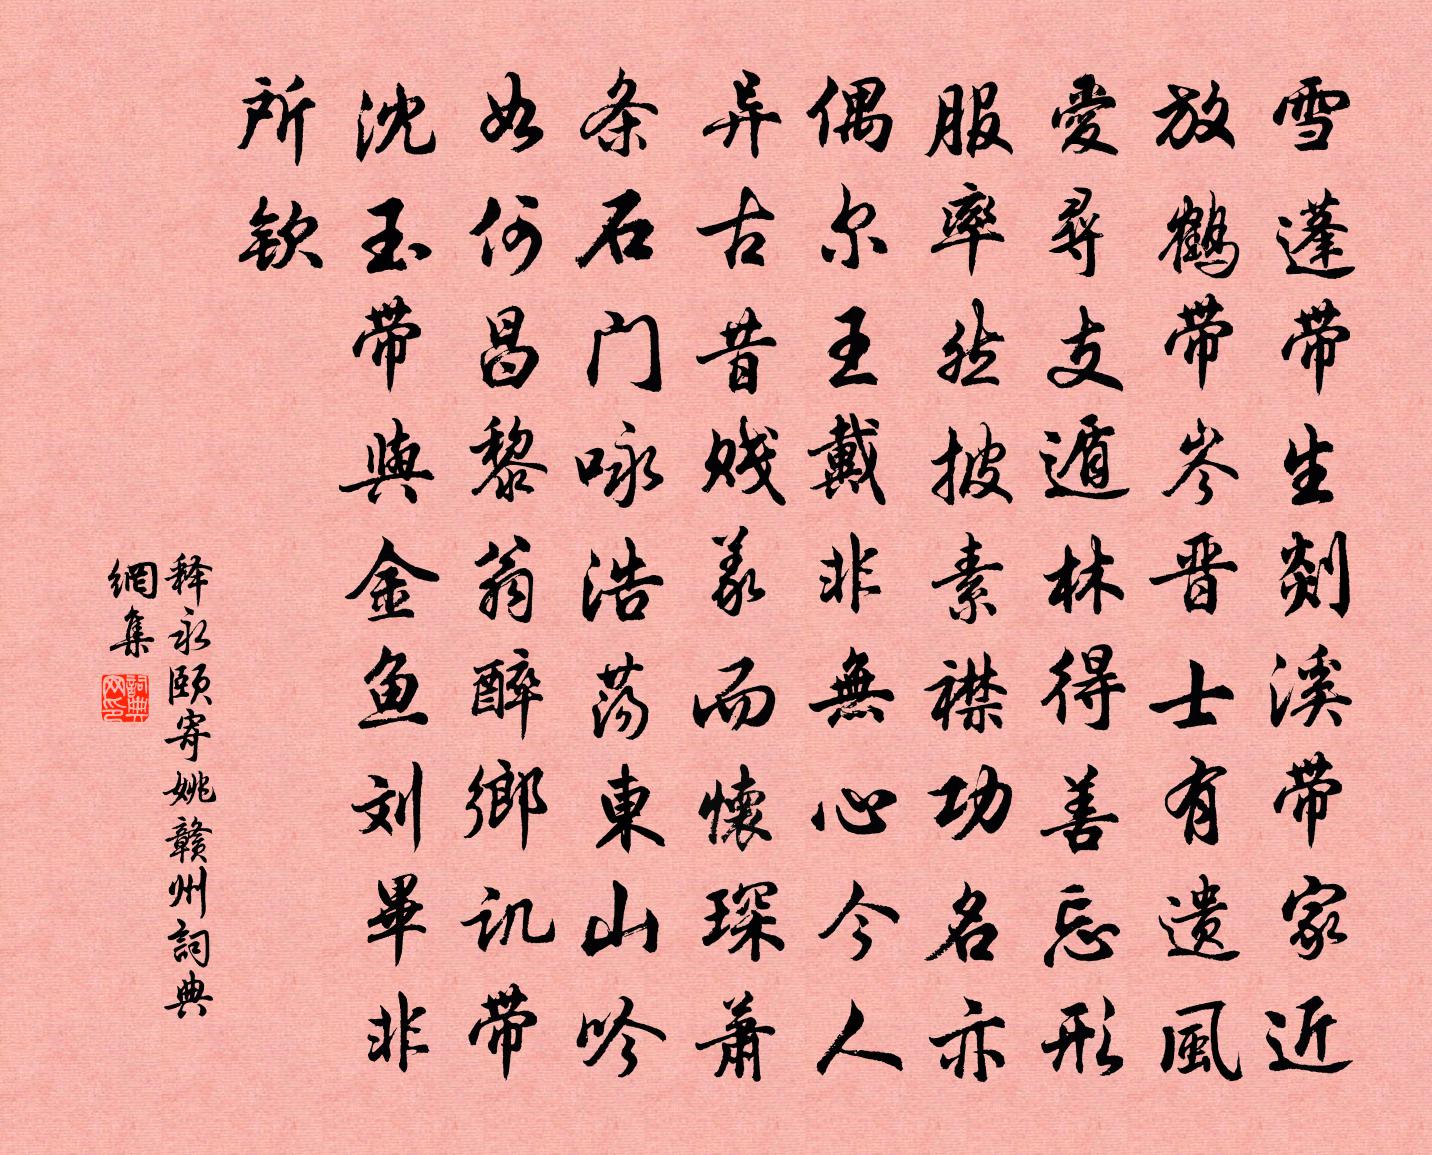 雪蓬带生剡溪带家近
放鶴带岑晋士有遗風
愛尋支遁林得善忘形
服率然披素襟功名亦
偶尔王戴非無心今人
异古昔贱義而懷琛萧
条石门咏浩荡東山吟
如何昌黎翁醉鄉讥带
沈玉带與金鱼刘畢非
所欽
释永颐寄姚赣州詞典
網集
詞典
网印